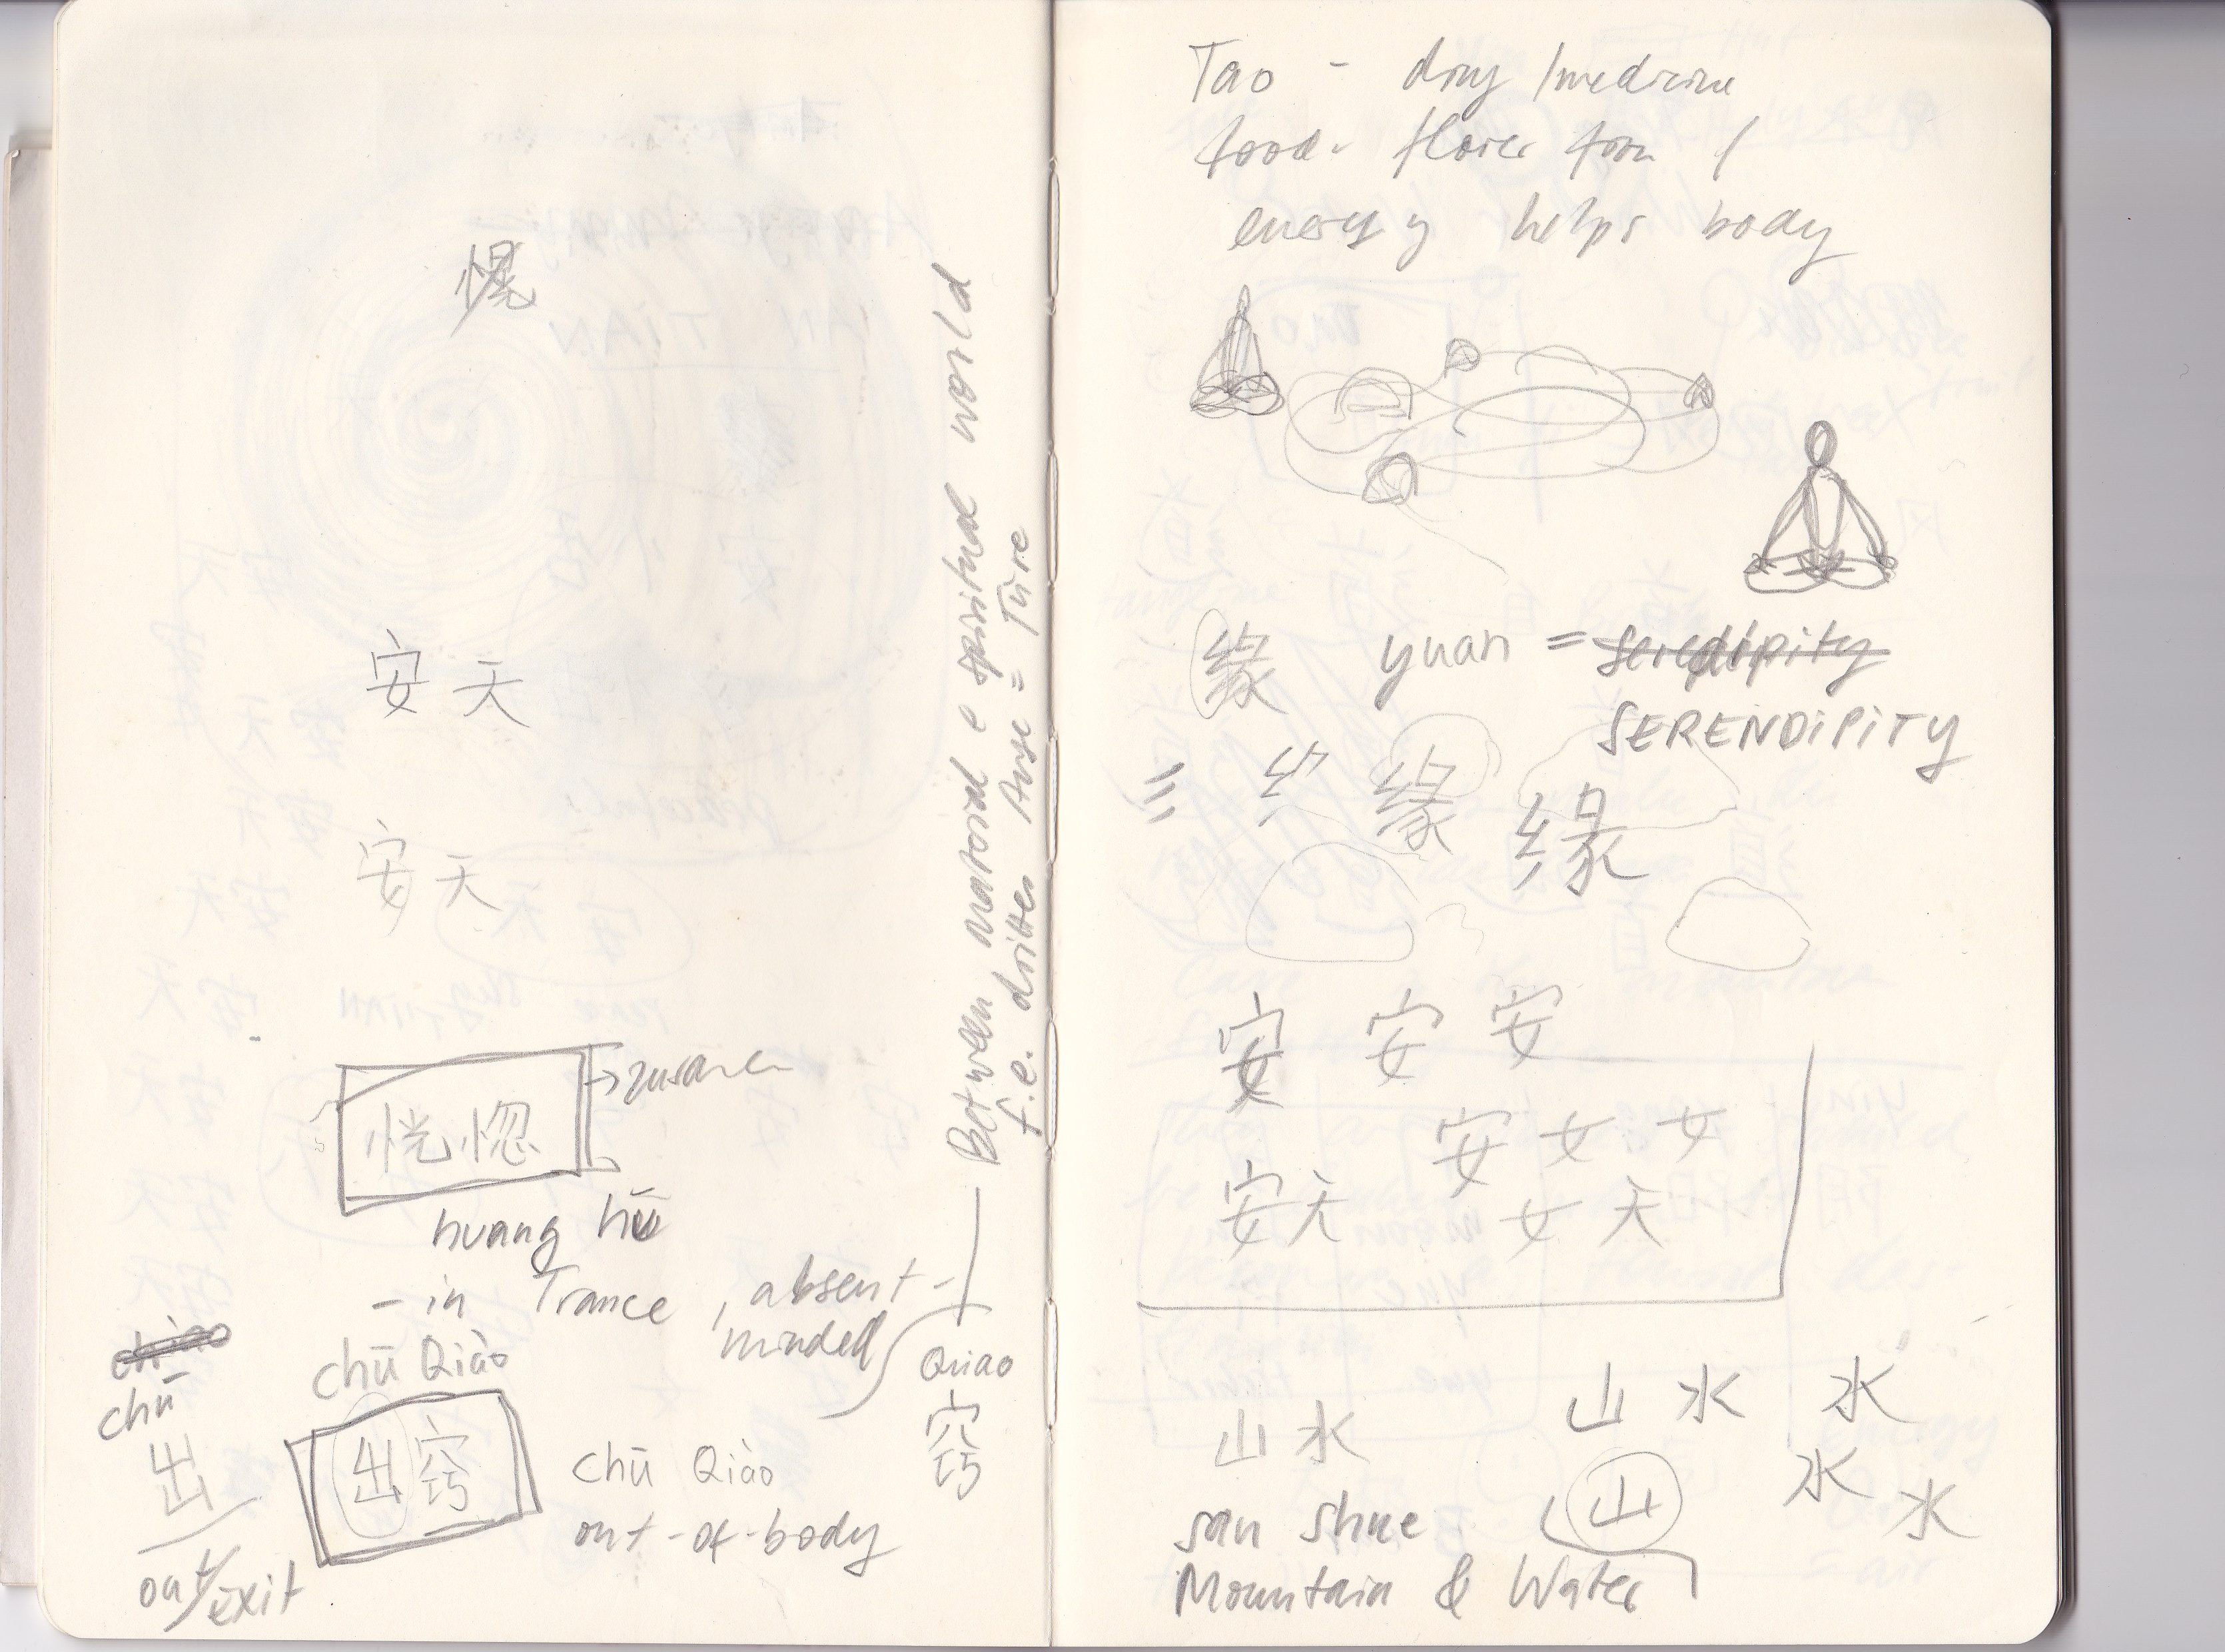 愰
安 天
安 天
恍惚
huang hū
- in Trance, absent-
minded
Between material e spiritual world
f.e. drittes Auge = Türe
chū Qiào
chū
出
out/exit
出窍
chū Qiào
out-of-body
Qiao
窍
Tao - drug/medicine
food
energy helps body
缘 yuan = seredipity
SERENDIPITY
= 缘 缘
安 安 安
安 女 女
安天 女 天
山水 山 水 水
山 水 水
san shue
Mountain & Water